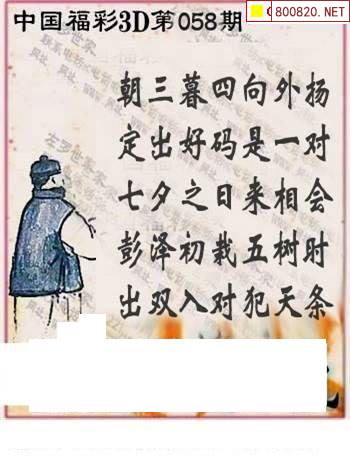 800820.NET
中国福彩3D第058期
朝三暮四向外扬
定出好码是一对
七夕之日来相会
彭泽初栽五树时
出双入对犯天条